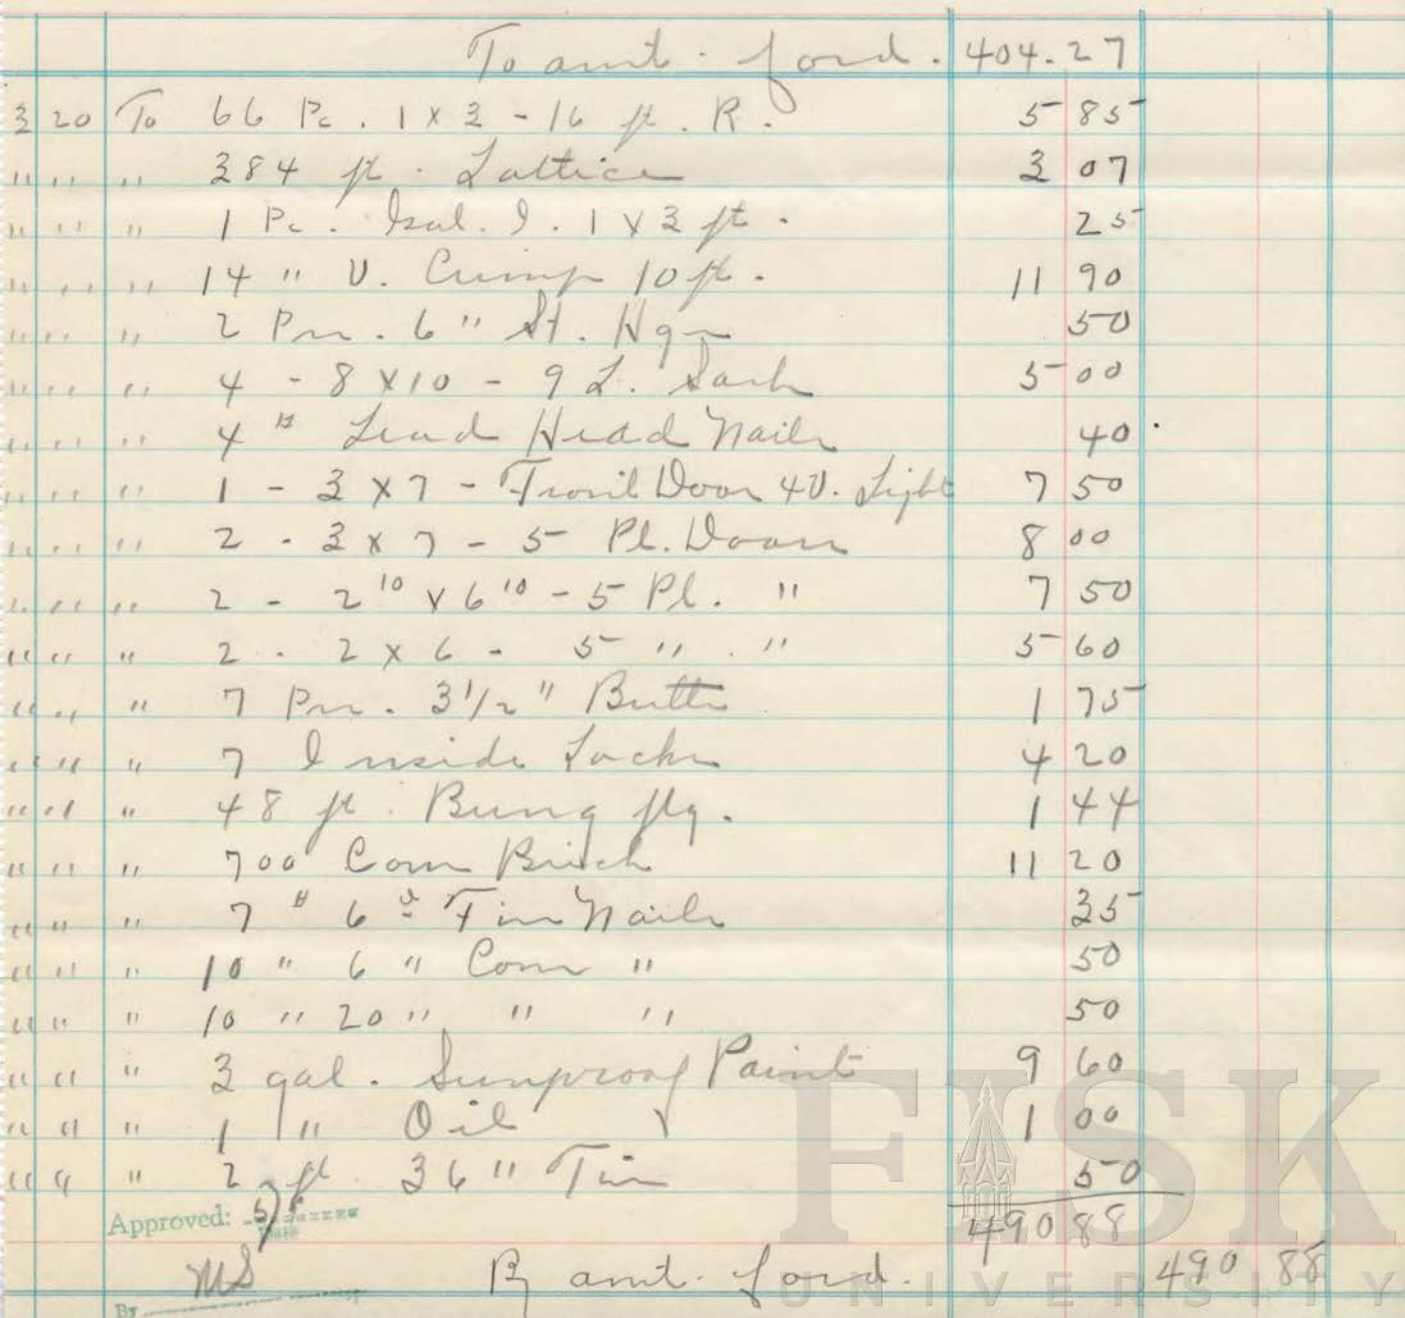 To amt. ford. 404.27
3 20 To 66 Pc. 1 x 3 - 16 ft. R. 5 85
" " " 384 ft. Lattice 3 07
" " " 1 Pc. Gal. I. 1 x 3 ft. 25
" " " 14 " V. Crimp 10 ft. 11 90
" " " 2 Prs. 6" St. Hgs 50
" " " 4 - 8 x 10 - 9 L. Sash 5 00
" " " 4 # Lead Head Nails 40
" " " 1 - 3 x 7 - Front Door 4V. Light 7 50
" " " 2 - 3 x 7 - 5 Pl. Doors 8 00
" " " 2 - 2 10 x 6 10 - 5 Pl. " 7 50
" " " 2 - 2 x 6 - 5 " " 5 60
" " " 7 Prs. 3 1/2" Butts 1 75
" " " 7 Inside Locks 4 20
" " " 48 ft. Bung flg. 1 44
" " " 700 Com Brick 11 20
" " " 7 # 6 d Fin Nails 35
" " " 10 " 6 " Com " 50
" " " 10 " 20 " " " 50
" " " 3 gal. Sunproof Paint 9 60
" " " 1 " Oil 1 00
" " " 2 ft 36" Tin 50
Approved: 490 88
MS By amt. ford. 490 88
By
FISK
UNIVERSITY